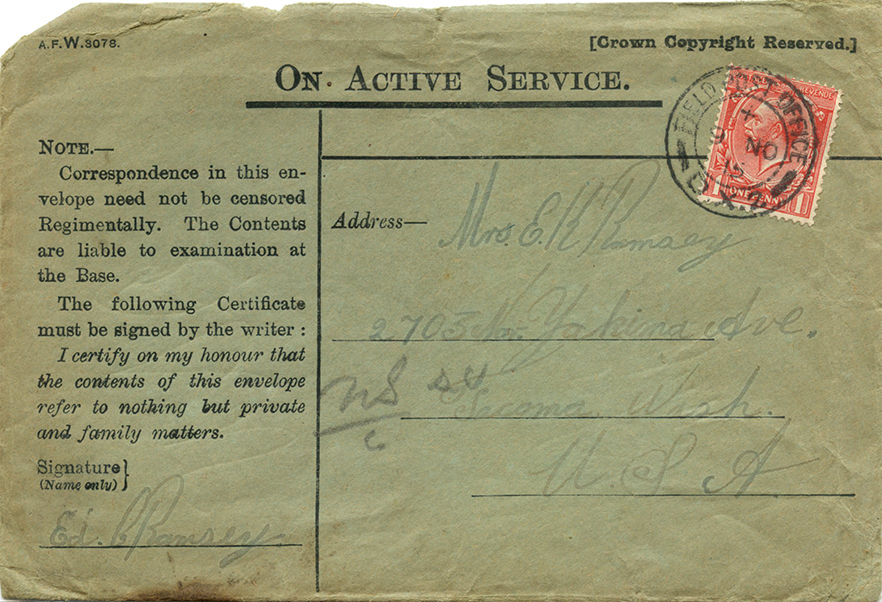 A.F.W.3078.
[Crown Copyright Reserved.]
ON ACTIVE SERVICE.
NOTE.—
Correspondence in this en-
velope need not be censored
Regimentally. The Contents
are liable to examination at
the Base.
The following Certificate
must be signed by the writer :
I certify on my honour that
the contents of this envelope
refer to nothing but private
and family matters.
Signature}
(Name only)
Ed. C Ramsey.
Address—
Mrs. E. K Ramsey
2705 No. Yakima Ave.
Tacoma Wash.
U. S A
FIELD POST OFFICE
9 NO
D X.2
REVENUE
1 ONE PENNY 1